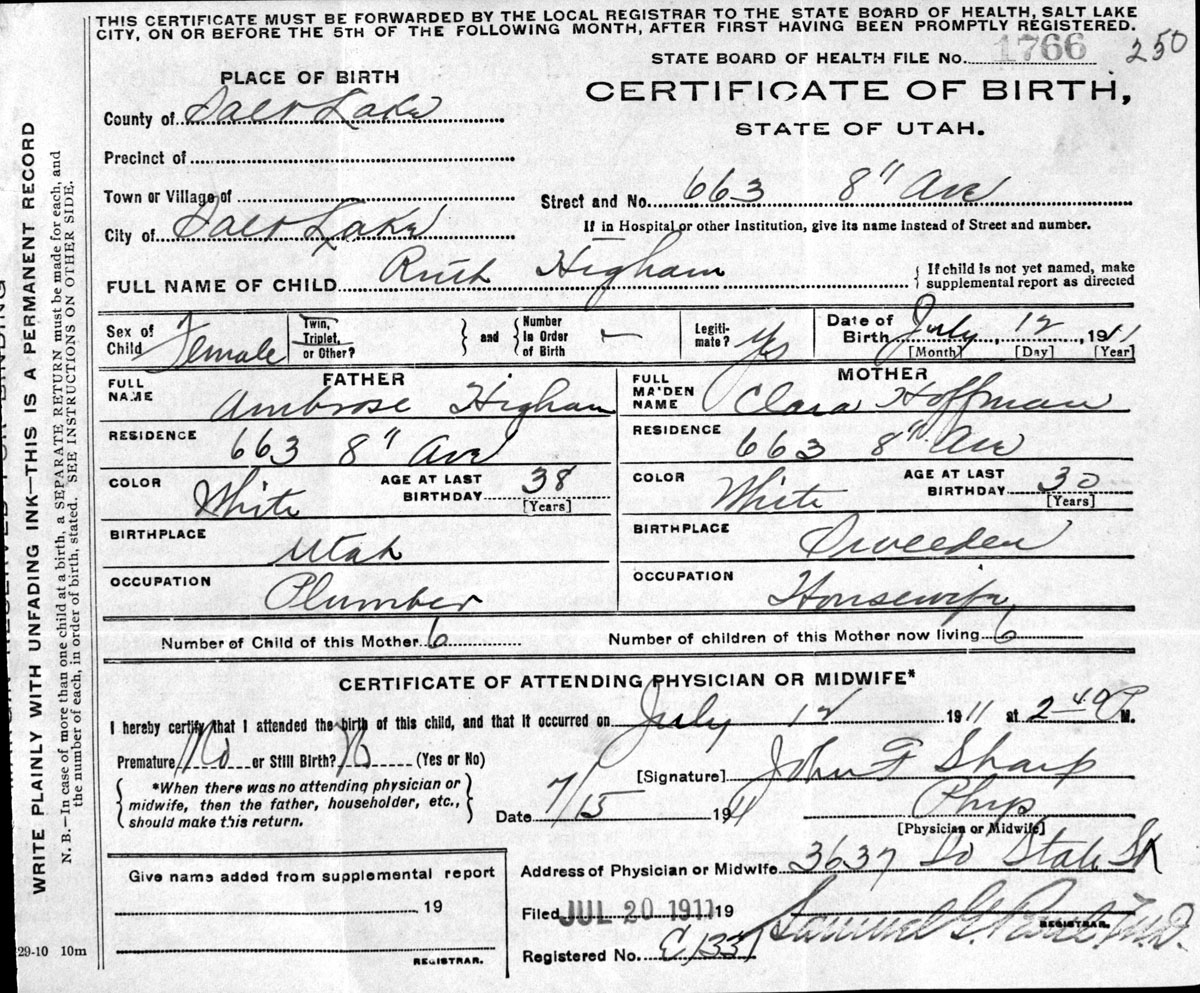 THIS CERTIFICATE MUST BE FORWARDED BY THE LOCAL REGISTRAR TO THE STATE BOARD OF HEALTH, SALT LAKE
CITY, ON OR BEFORE THE 5TH OF THE FOLLOWING MONTH, AFTER FIRST HAVING BEEN PROMPTLY REGISTERED.
STATE BOARD OF HEALTH FILE NO. 1766 250
PLACE OF BIRTH
CERTIFICATE OF BIRTH,
STATE OF UTAH.
County of Salt Lake
Precinct of
Town or Village of
Street and No. 663 8" Ave
City of Salt Lake
If in Hospital or other Institution, give its name instead of Street and number.
FULL NAME OF CHILD Ruth Higham
{ If child is not yet named, make
supplemental report as directed
Sex of Child Female
Twin, Triplet, or Other? } and { Number in Order of Birth —
Legiti-mate? Yes
Date of Birth July, 12, 1911
[Month] [Day] [Year]
FATHER
FULL NAME Ambrose Higham
RESIDENCE 663 8" Ave
COLOR White
AGE AT LAST BIRTHDAY 38
[Years]
BIRTHPLACE Utah
OCCUPATION Plumber
MOTHER
FULL MAIDEN NAME Clara Hoffman
RESIDENCE 663 8th Ave
COLOR White
AGE AT LAST BIRTHDAY 30
[Years]
BIRTHPLACE Sweeden
OCCUPATION Housewife
Number of Child of this Mother 6
Number of children of this Mother now living 6
CERTIFICATE OF ATTENDING PHYSICIAN OR MIDWIFE*
I hereby certify that I attended the birth of this child, and that it occurred on July 12 1911 at 2 40 P M.
Premature No or Still Birth? No (Yes or No)
[Signature] John F Sharp
{ *When there was no attending physician or
midwife, then the father, householder, etc.,
should make this return. }
Date 7/15 1911
Phys
[Physician or Midwife]
Address of Physician or Midwife 3637 So State St
Give name added from supplemental report
19
REGISTRAR.
Filed JUL 20 1911 19
Samuel G. Paul M.D.
REGISTRAR.
Registered No. E1331
29-10 10m
WRITE PLAINLY WITH UNFADING INK—THIS IS A PERMANENT RECORD
N. B.—In case of more than one child at a birth, a SEPARATE RETURN must be made for each, and
the number of each, in order of birth, stated. SEE INSTRUCTIONS ON OTHER SIDE.